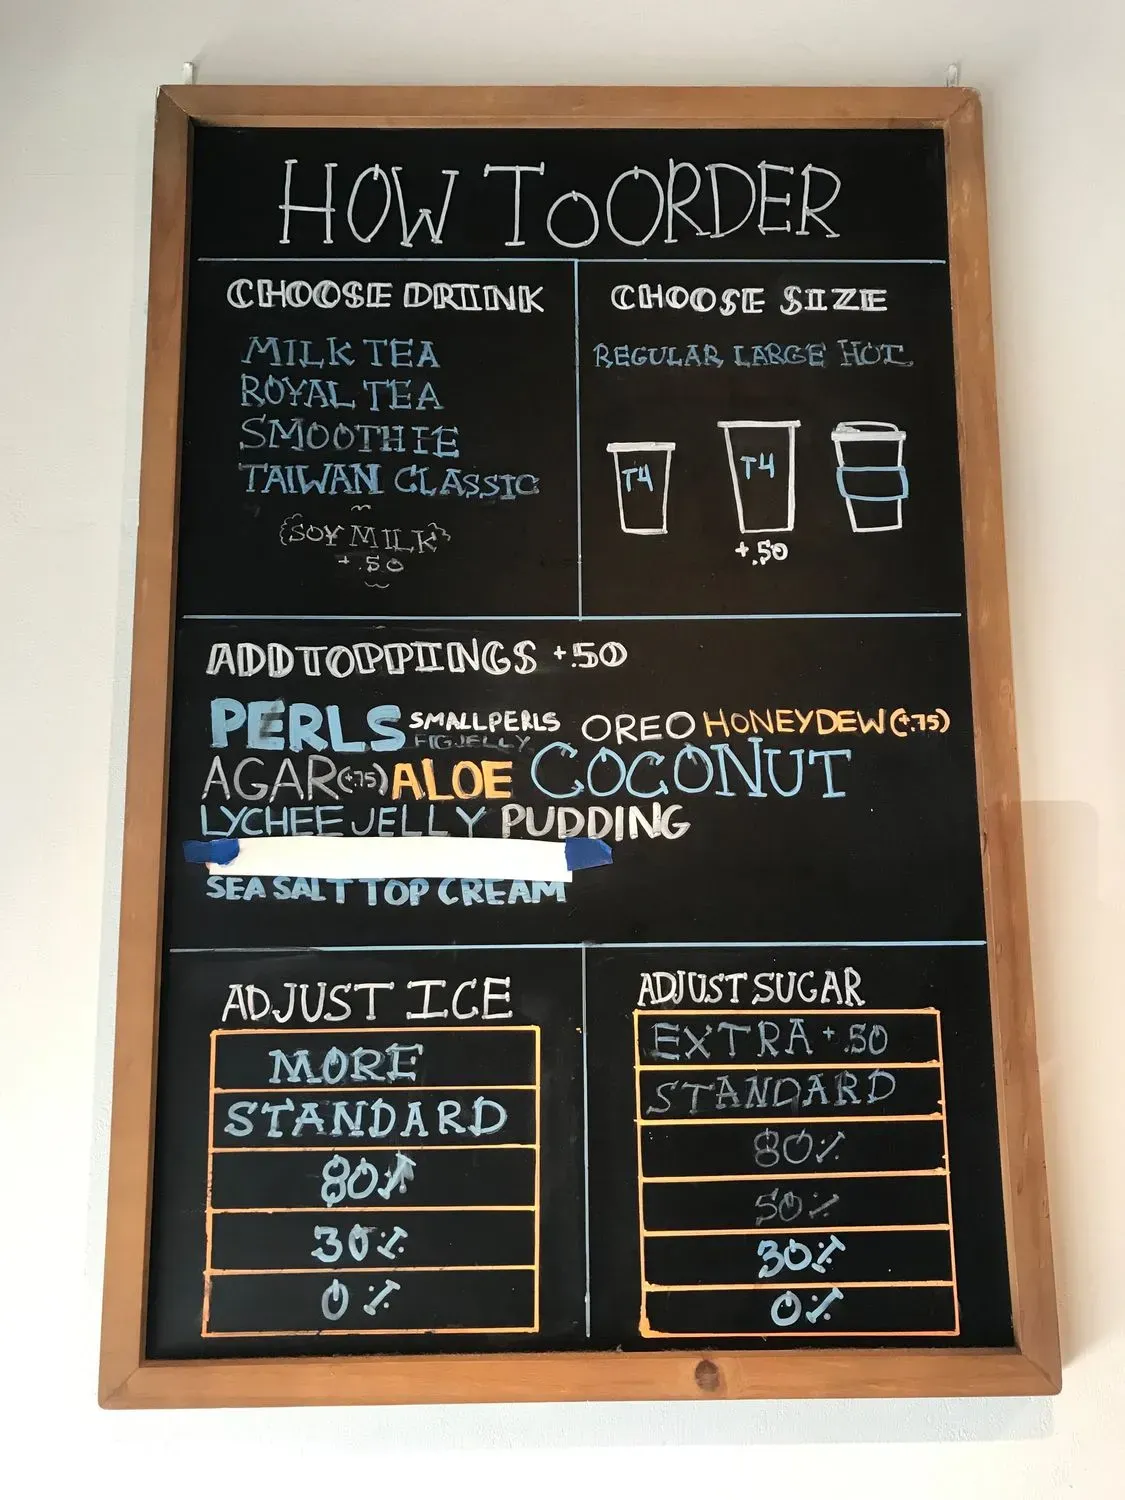 HOW TO ORDER
CHOOSE DRINK
MILK TEA
ROYAL TEA
SMOOTHIE
TAIWAN CLASSIC
{SOY MILK}
+.50
CHOOSE SIZE
REGULAR LARGE HOT
T4 T4
+.50
ADD TOPPINGS +.50
PERLS SMALL PERLS OREO HONEYDEW (+.75)
FIG JELLY
AGAR (+.75) ALOE COCONUT
LYCHEE JELLY PUDDING
SEA SALT TOP CREAM
ADJUST ICE
MORE
STANDARD
80%
30%
0%
ADJUST SUGAR
EXTRA +.50
STANDARD
80%
50%
30%
0%